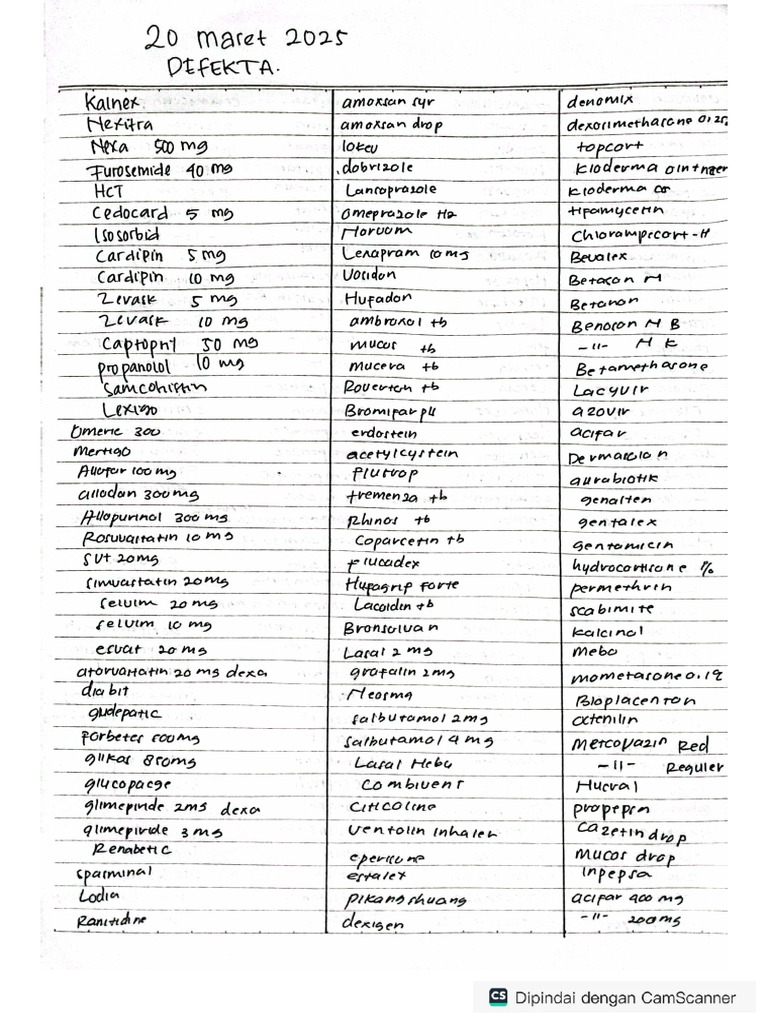 20 maret 2025
DEFEKTA.
Kalnex
Nexitra
Nexa 500 mg
Furosemide 40 mg
HCT
Cedocard 5 mg
Isosorbid
Cardipin 5 mg
Cardipin 10 mg
Zevask 5 mg
Zevask 10 mg
Captopril 50 mg
propanolol 10 mg
Samcohistin
Lexigo
Omeric 300
Mertigo
Allofar 100 mg
allodan 300 mg
Allopurinol 300 mg
Rosuvastatin 10 mg
SVT 20mg
simvastatin 20 mg
selvim 20 mg
selvim 10 mg
esvat 20 mg
atorvastatin 20 mg dexa
diabit
gludepatic
forbetes 500mg
glikos 850mg
glucopage
glimepiride 2mg dexa
glimepiride 3 mg
Renabetic
sparminal
Lodia
Ranitidine
amoxsan syr
amoxsan drop
lokev
dobrizole
Lansoprazole
omeprazole
Norvom
Lexapram 10 mg
Vosidon
Hufadon
ambroxol tb
mucos tb
mucera tb
Roverton tb
Bromifar
erdostein
acetylcystein
flutrop
tremenza tb
Rhinos tb
Coparcetin tb
flucadex
Hufagrip forte
Lacoldin tb
Bronsolvan
Lasal 2 mg
grafalin 2mg
Neosma
salbutamol 2mg
salbutamol 4 mg
Lasal Nebu
Combivent
Citicoline
Ventolin inhaler
eperisone
estalex
pikangshuang
dexigen
denomix
dexosimethasone 0,25
topcort
Kloderma
Kloderma cr
Ifamycetin
Chlorampecort-H
Bevalex
Betason N
Betanon
Benoson N B
-11- N K
Betamethasone
Lacyvir
azovir
acifar
Dermasolon
aurabiotik
genalten
gentalex
gentamicin
hydrocortisone 1%
permethrin
scabimite
kalcinol
Mebo
mometasone 0.1%
Bioplacenton
octenilin
Mercovazin Red
-11- Reguler
Nucral
propepsa
Cazetin drop
Mucos drop
Inpepsa
acifar 400 mg
-11- 200 mg
CS Dipindai dengan CamScanner